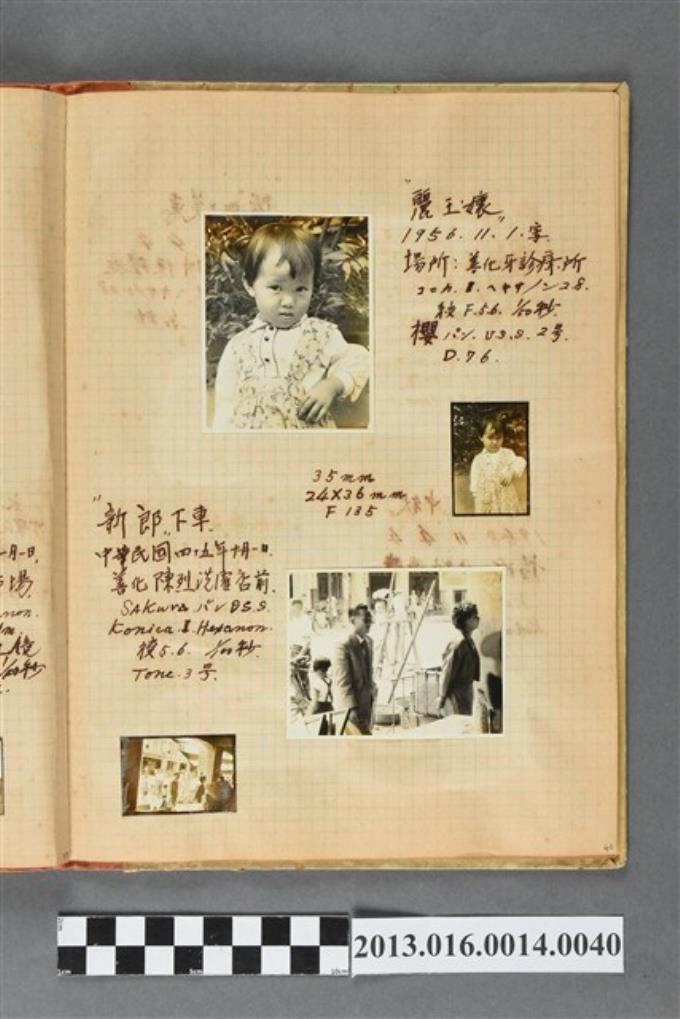 "麗玉孃"
1956. 11. 1. 寫.
場所: 善化牙診療所
コニカ. Ⅱ. ヘキサノン 2.8.
絞 F.5.6. 1/50秒.
櫻 パン. U.S.S. 2号.
D.76.
35mm
24×36mm
F 135
"新郎下車"
中華民國四十五年十一月一日.
善化陳烈洗 前.
SAKura パン U.S.S.
Konica Ⅱ. Hexanon.
絞5.6. 1/100秒.
Tone. 3号.
月一日.
場
non.
秒
2013.016.0014.0040